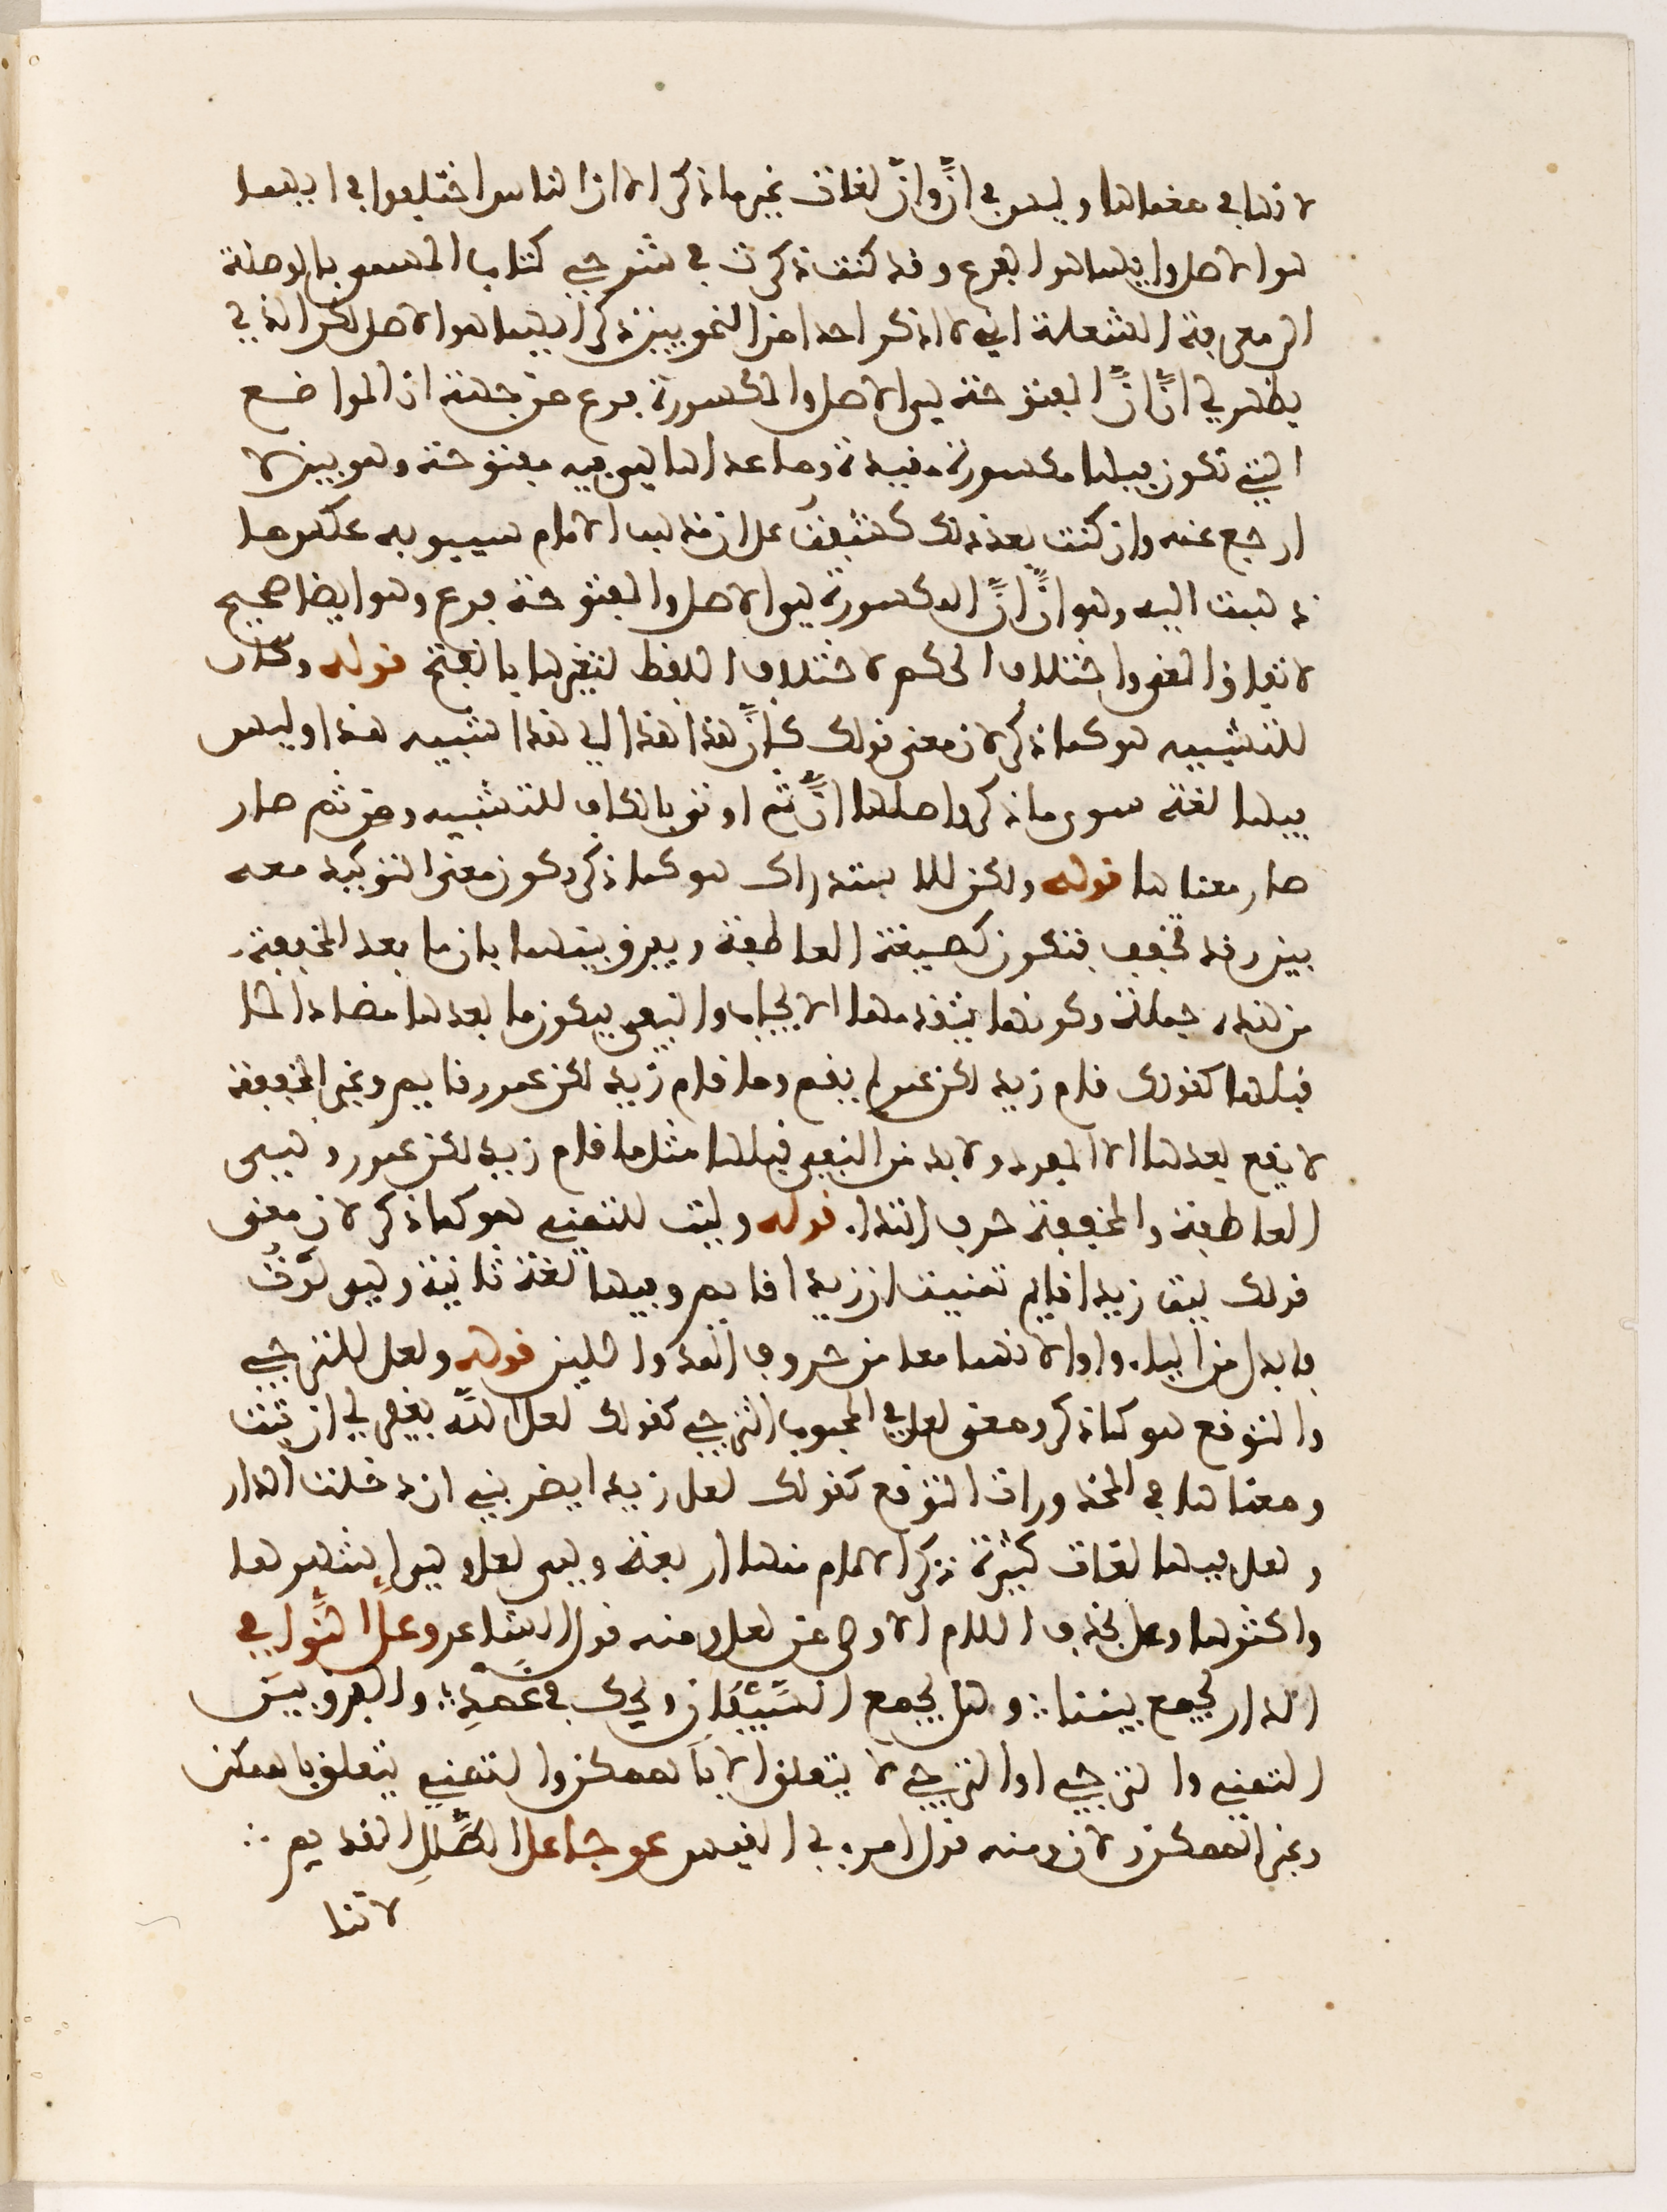 لانها في معناها وليس في انَّ وانَّ لغات غير ما ذكر الا ان الناس اختلفوا في ايهما
هو الاصل وايهما هو الفرع وقد كنت ذكرت في شرحي كتاب المسمى بالوصلة
الى معرفة الشعلة اني لا اذكر احدا من النحويين ذكر ايهما هو الاصل لكن الذي
يظهر لي انَّ انَّ المفتوحة هي الاصل والمكسورة فرع من جهة ان المواضع
التي تكون فيها مكسورة مقيدة وما عداها هي فيه مفتوحة وهو بين لا
ارجع عنه وان كنت بعد ذلك كشفت على ان مذهب الامام سيبويه عكس ما
ذهبت اليه وهو انَّ انَّ المكسورة هي الاصل والمفتوحة فرع وهو ايضا صحيح
لاتفاق المعنى واختلاف الحكم لاختلاف اللفظ لتغيرها بالفتح قوله وكان
للتشبيه هو كما ذكر لان معنى قولك كانَّ هذا هذا اي هذا شبيه هذا وليس
فيها لغة سوى ما ذكر واصلها انَّ ثم اوتي بالكاف للتشبيه ومن ثم صار
صار معناها قوله ولكن للاستدراك هو كما ذكر وكون معنى التوكيد معه
بين وقد تخفف فتكون كصيغة العاطفة ويفرق بينهما بان ما بعد المخففة
من هذه جملة وكونها يتقدمها الايجاب والنفي فيكون ما بعدها مضادا لما
قبلها كقولك قام زيد لكن عمرو لم يقم وما قام زيد لكن عمرو قايم وغير المخففة
لا يقع بعدها الا المفرد ولا بد من النفي قبلها مثل ما قام زيد لكن عمرو وهي
العاطفة والمخففة حرف ابتدا. قوله وليت للتمني هو كما ذكر لان معنى
قولك ليت زيدا قايم تمنيت ان زيدا قايم وفيها لغة ثانية وهي لوَّتُ
فابدل من الياء واوا لانهما معا من حروف المد واللين قوله ولعل للترجي
والتوقع هو كما ذكر ومعنى لعل في المحبوب الترجي كقولك لعل اللَّه يغفر لي ان تبت
ومعناها في المحذورات التوقع كقولك لعل زيدا يضربني ان دخلت الدار
ولعل فيها لغات كثيرة ذكر الامام منها اربعة وهي لعل وهي اشهرها
واكثرها وعل بحذف اللام الاولى من لعل ومنه قول الشاعر وعل النَّوا في
الدار يجمع بيننا ∴ وهل يجمع السَّيْفَان ويحك في غمدِ ∴ والفرق بين
التمني والترجي ان الترجي لا يتعلق الا بالممكن والتمني يتعلق بالممكن
وغير الممكن ولان ومنه قول امرء في القيس عوجا على الطَّللِ القديم ∴
لاننا